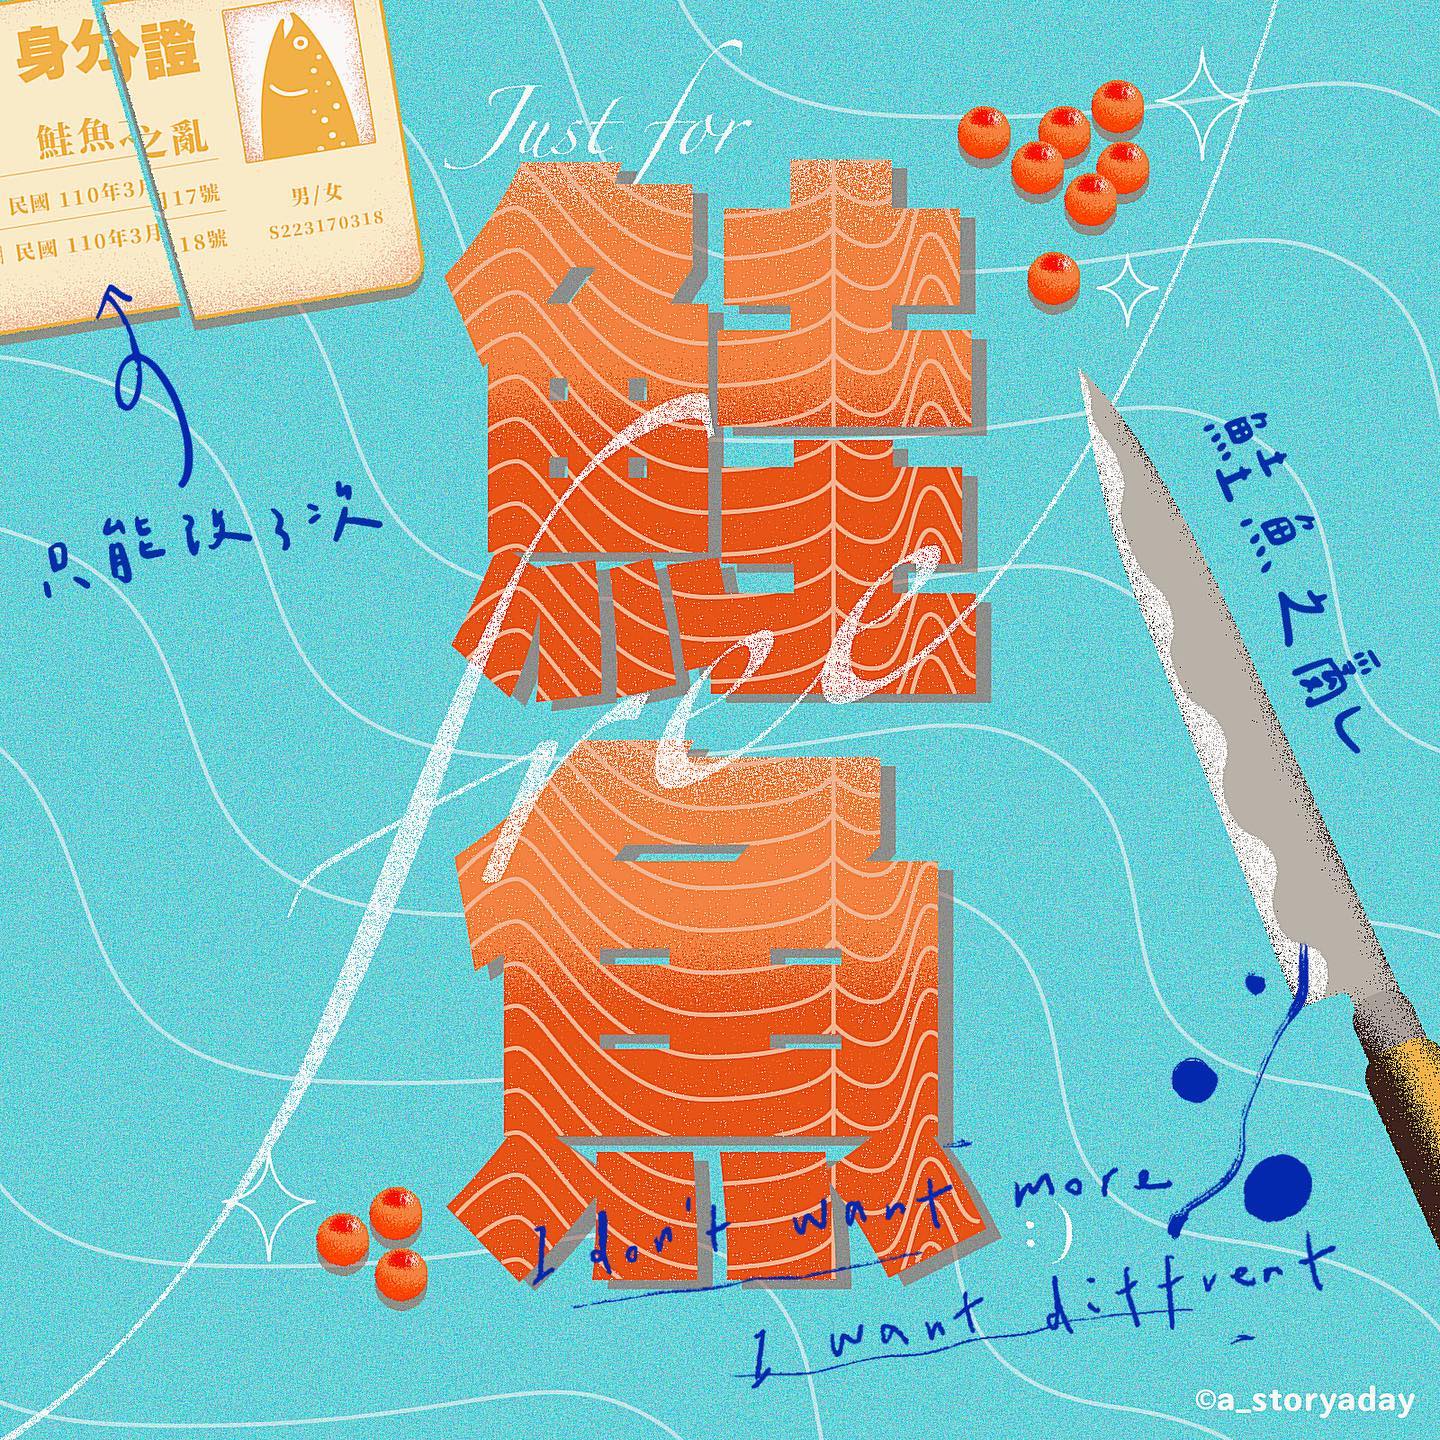 身分證
鮭魚之亂
民國 110年3月17號
民國 110年3月18號
男/女
S223170318
Just for
free
鮭魚
只能改3次
鮭魚之亂
I don't want more
:)
I want diffrent
©a_storyaday